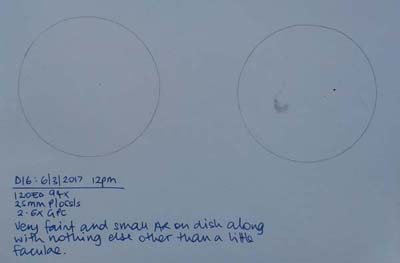 D16: 6/3/2017 12pm
120ED 94x
25mm Plossls
2.6x GPC
Very faint and small AR on disk along
with nothing else other than a little
faculae.